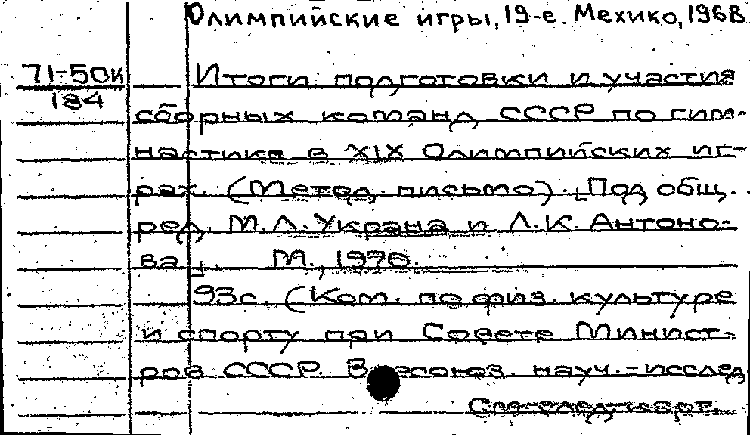 Олимпийские игры, 19-е. Мехико, 1968.
71-50к
184
Итоги подготовки и участия
сборных команд СССР по гим-
настике в XIX Олимпийских иг-
рах. (Метод. письмо). Под общ.
ред. М.Л. Украна и Л.К. Антоно-
ва. М., 1970.
93с. (Ком. по физ. культуре
и спорту при Совете Минист-
ров СССР. Всесоюз. науч.-исслед
См. след. карт.